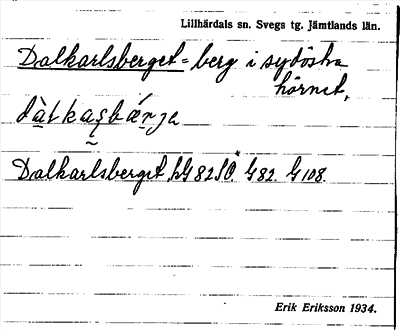 Lillhärdals sn. Svegs tg. Jämtlands län.
Dalkarlsberget = berg i sydöstra
hörnet,
Dalkarlsberget G82 G108
Erik Eriksson 1934.